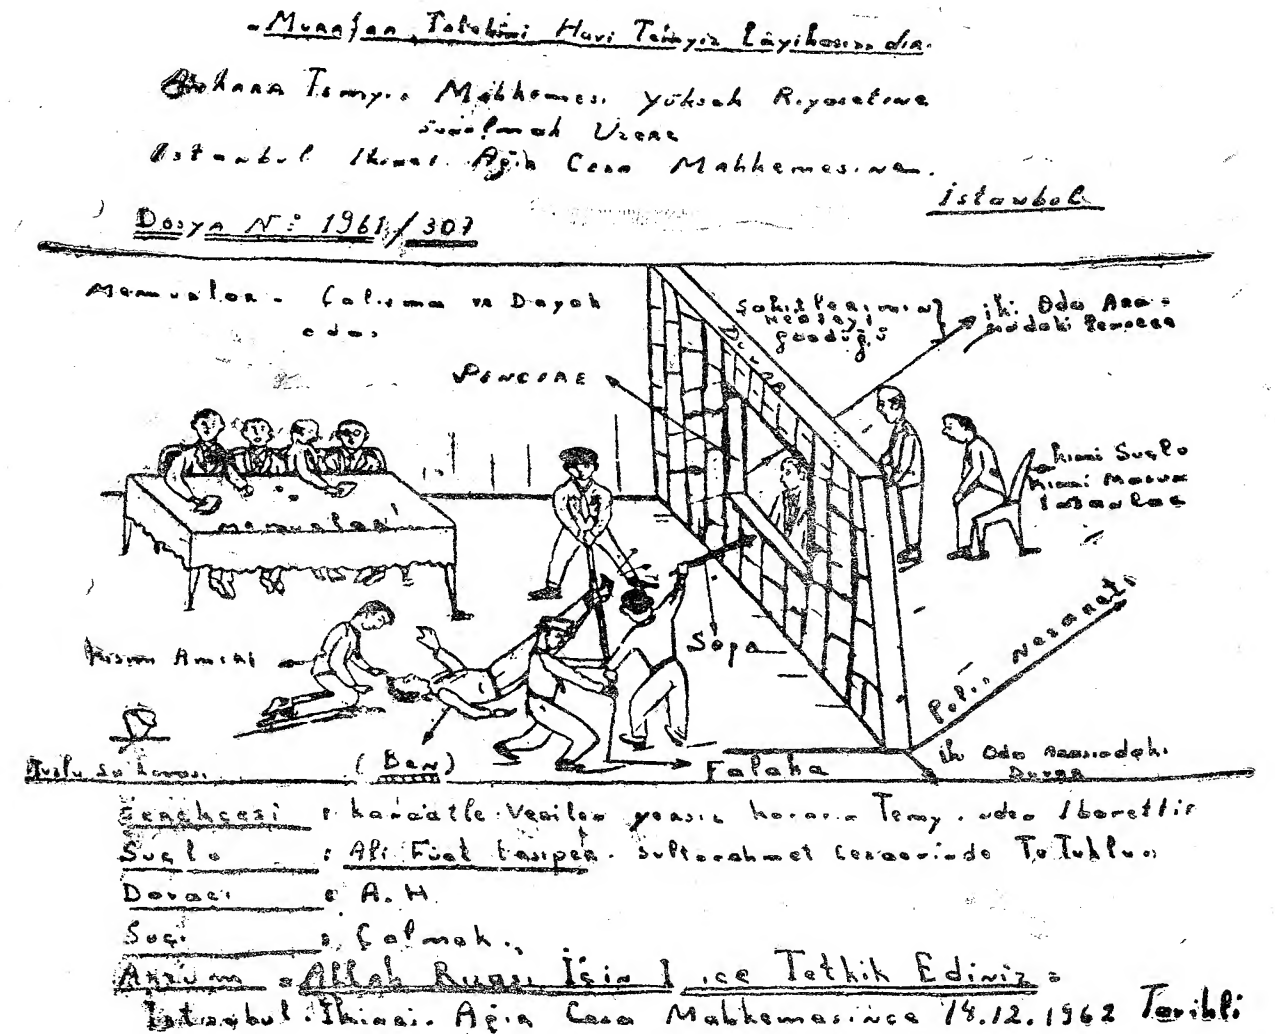 Murafaa Talebini Havi Temyiz Lâyihasıdır.
Ankara Temyiz Mahkemesi Yüksek Riyasetine
Sunulmak Üzere
İstanbul İkinci Ağır Ceza Mahkemesine.
İstanbul
Dosya N: 1961/307
Memurlar - Çalışma ve Dayak
odası
Şahitlerimin
gördüğü
iki Oda Ara-
sındaki Pencere
DUVAR
PENCERE
kimi Suçlu
kimi Masum
İnsanlar
memurlar
Kısım Amiri
Sopa
Polis Nezareti
(Ben)
Falaka
iki Oda Arasındaki
Duvar
su kovası
Gerekçesi : kanaatle Verilen kararın Temyizinden İbarettir
Suçlu : Ali Fuat Sultanahmet Cezaevinde Tutuklu
Davacı : A.H.
Suçu : Çalmak.
Arzum = Allah Rızası İçin İyice Tetkik Ediniz =
İstanbul İkinci Ağır Ceza Mahkemesince 14.12.1962 Tarihli